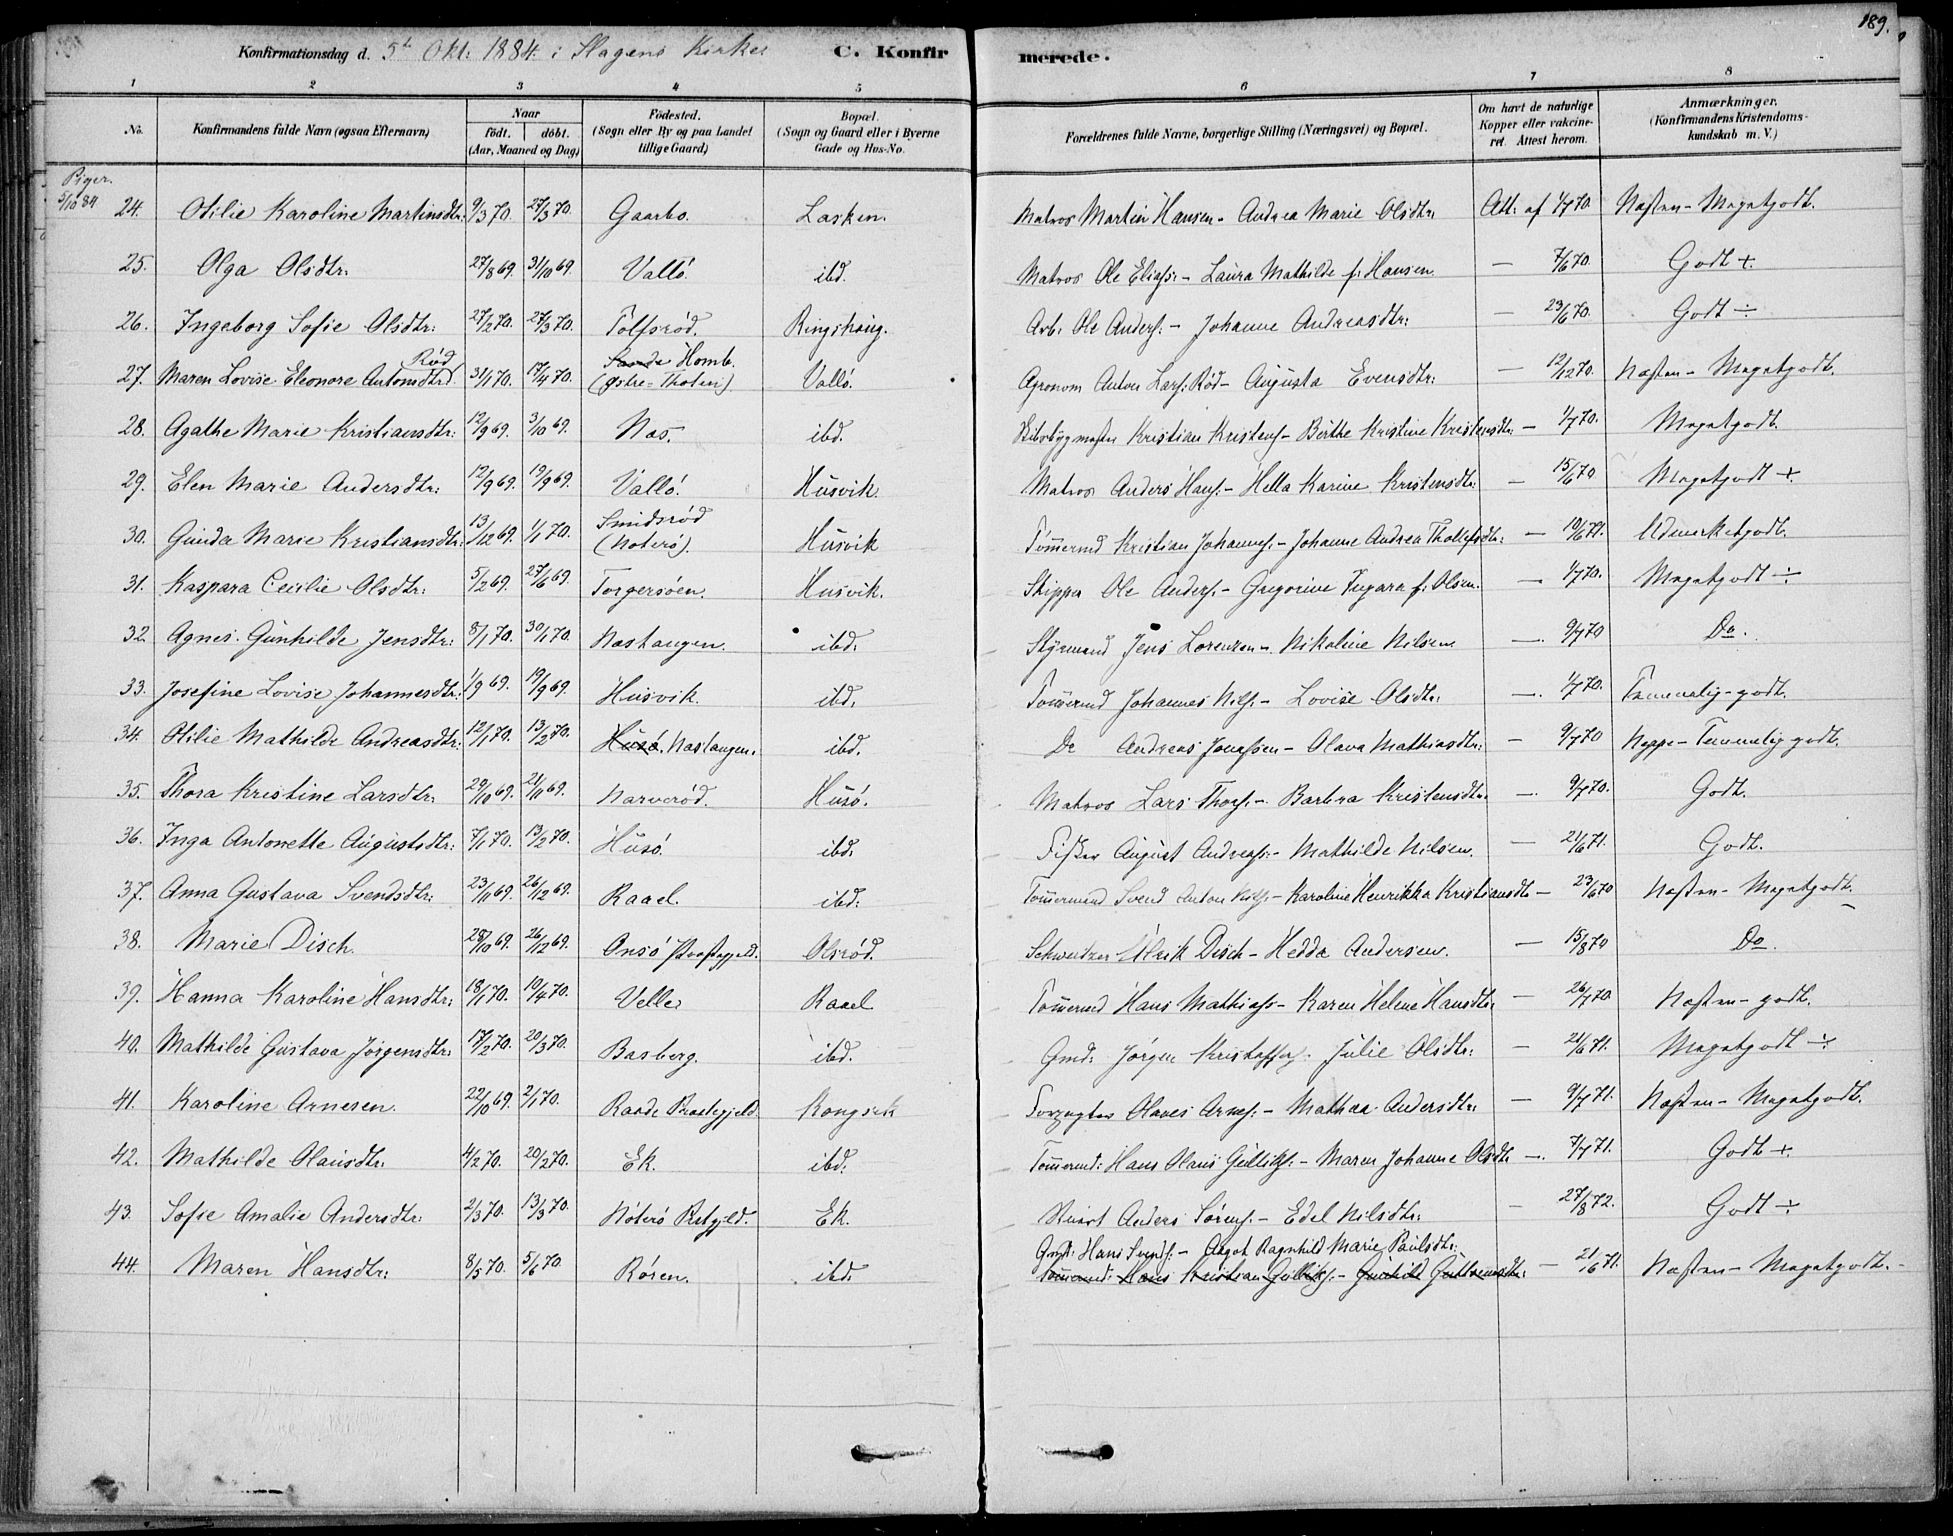 189.
Konfirmationsdag d. 5te Okt. 1884 i Slagens Kirke C. Konfirmerede.
1 2 3 4 5 6 7 8
No. | Konfirmandens fulde Navn (ogsaa Efternavn) | Naar födt. döbt. (Aar, Maaned og Dag) | Födested. (Sogn eller By og paa Landet tillige Gaard) | Bopæl. (Sogn og Gaard eller i Byerne Gade og Hus-No. | Forældrenes fulde Navne, borgerlige Stilling (Næringsvei) og Bopæl. | Om havt de naturlige Kopper eller vakcineret. Attest herom. | Anmærkninger. (Konfirmandens Kristendomskundskab m. V.)
Piger.
5/10 84
24. Otilie Karoline Martinsdtr. 9/3 70. 27/3 70. Gaarbo. Lasken. Matros Martin Hansen - Andrea Marie Olsdtr: Att: af 1/7 70. Næsten - Megetgodt.
25. Olga Olsdtr. 27/8 69. 31/10 69. Vallö. ibd. Matros Ole Eliass: - Laura Mathilde f: Hansen — 7/6 70. Godt +.
26. Ingeborg Sofie Olsdtr: 27/2 70. 27/3 70. Tolfsröd. Ringshaug. Arb: Ole Anders: - Johanne Andreasdtr: — 23/6 70. Godt ÷
27. Maren Lovise Eleonore Antonsdtr. Röd 31/1 70. 17/4 70. Homb. (Østre-Thoten). Vallö. Agronom Anton Lars: Röd - Augusta Evensdtr: — 12/12 70. Næsten - Megetgodt.
28. Agathe Marie Kristiansdtr: 12/9 69. 3/10 69. Næs. ibd. Skibsbygmester Kristian Kristens: - Birthe Kristine Kristensdtr — 1/7 70. Megetgodt.
29. Elen Marie Andersdtr: 12/9 69. 19/9 69. Vallö. Husvik. Matros Anders Hans: - Hella Karine Kristensdtr: — 15/6 70 Megetgodt +
30. Gunda Marie Kristiansdtr: 13/12 69. 1/1 70. Smidsröd (Noterö). Husvik Tömermd Kristian Johannes: - Johanne Andrea Thollefsdtr: — 10/6 71. Udmerketgodt.
31. Kaspara Cecilie Olsdtr: 5/2 69. 27/6 69. Torgersöen. Husvik. Skipper Ole Anders: - Gregorine Ingara f: Olsen. — 1/7 70. Megetgodt ÷
32. Agnes Gunhilde Jensdtr: 8/1 70. 30/1 70. Næstangen. ibd. Styrmand Jens Lorenzen - Nikoline Nilsen — 9/7 70 Do.
33. Josefine Lovise Johannesdtr: 1/9 69. 19/9 69. Husvik. ibd. Tömermd Johannes Nils: - Lovise Olsdtr: — 1/7 70. Temmelig-godt.
34. Otilie Mathilde Andreasdtr: 12/1 70. 13/2 70. Husö. Næstangen. ibd. Do Andreas Jonassen - Olava Mathiasdtr: — 9/7 70 Neppe - Temmelig godt.
35. Thora Kristine Larsdtr: 29/10 69. 21/11 69. Narveröd. Husö. Matros Lars Thors: - Barbra Kristensdtr. — 9/7 70. Godt.
36. Inga Antonette Augustsdtr: 7/1 70. 13/2 70. Husö. ibd. Fisker August Andreass: - Mathilde Nilsen. — 21/6 71. Godt.
37. Anna Gustava Svendsdtr: 23/11 69. 26/12 69. Raael. ibd: Tömermand Svend Anton Nils: - Karoline Henrikka Kristiansdtr — 23/6 70 Næsten - Megetgodt.
38. Marie Disch. 28/10 69. 26/12 69. Onsö Præstegjeld. Olsröd. Schweitzer Ulrik Disch - Hedda Andersen. — 15/8 70 Do.
39. Hanna Karoline Hansdtr: 18/1 70. 10/4 70. Velle. Raael Tömermd Hans Mathiass - Karen Helene Hansdtr. — 26/7 70. Næsten - godt.
40. Mathilde Gustava Jørgensdtr: 17/2 70. 20/3 70. Basberg. ibd. Gmd: Jørgen Kristoffers: Julie Olsdtr: — 21/6 71. Megetgodt ÷
41. Karoline Arnesen. 22/10 69. 2/1 70. Raade Præstegjeld. Rongsek Forpagter Olaves Arnes: - Mathea Andersdtr: — 9/7 71. Næsten - Megetgodt.
42. Mathilde Olausdtr. 4/2 70. 20/2 70. Ek. ibd. Tömermd: Hans Olaus Gulliks: - Maren Johanne Olsdtr — 7/7 71. Godt +.
43. Sofie Amalie Andersdtr: 2/3 70. 13/3 70. Nöterö Pstgjld. Ek. Anders Sörens: - Edel Nilsdtr: — 27/8 72. Godt ÷
44. Maren Hansdtr: 8/5 70. 5/6 70. Rören. ibd. Gmd: Hans Svends: - Aagot Ragnhild Marie Paulsdtr: — 21/6 71. Næsten - Megetgodt.
Tömermd: Hans Kristian Gulliks: - Gunhild Guttormsdtr: